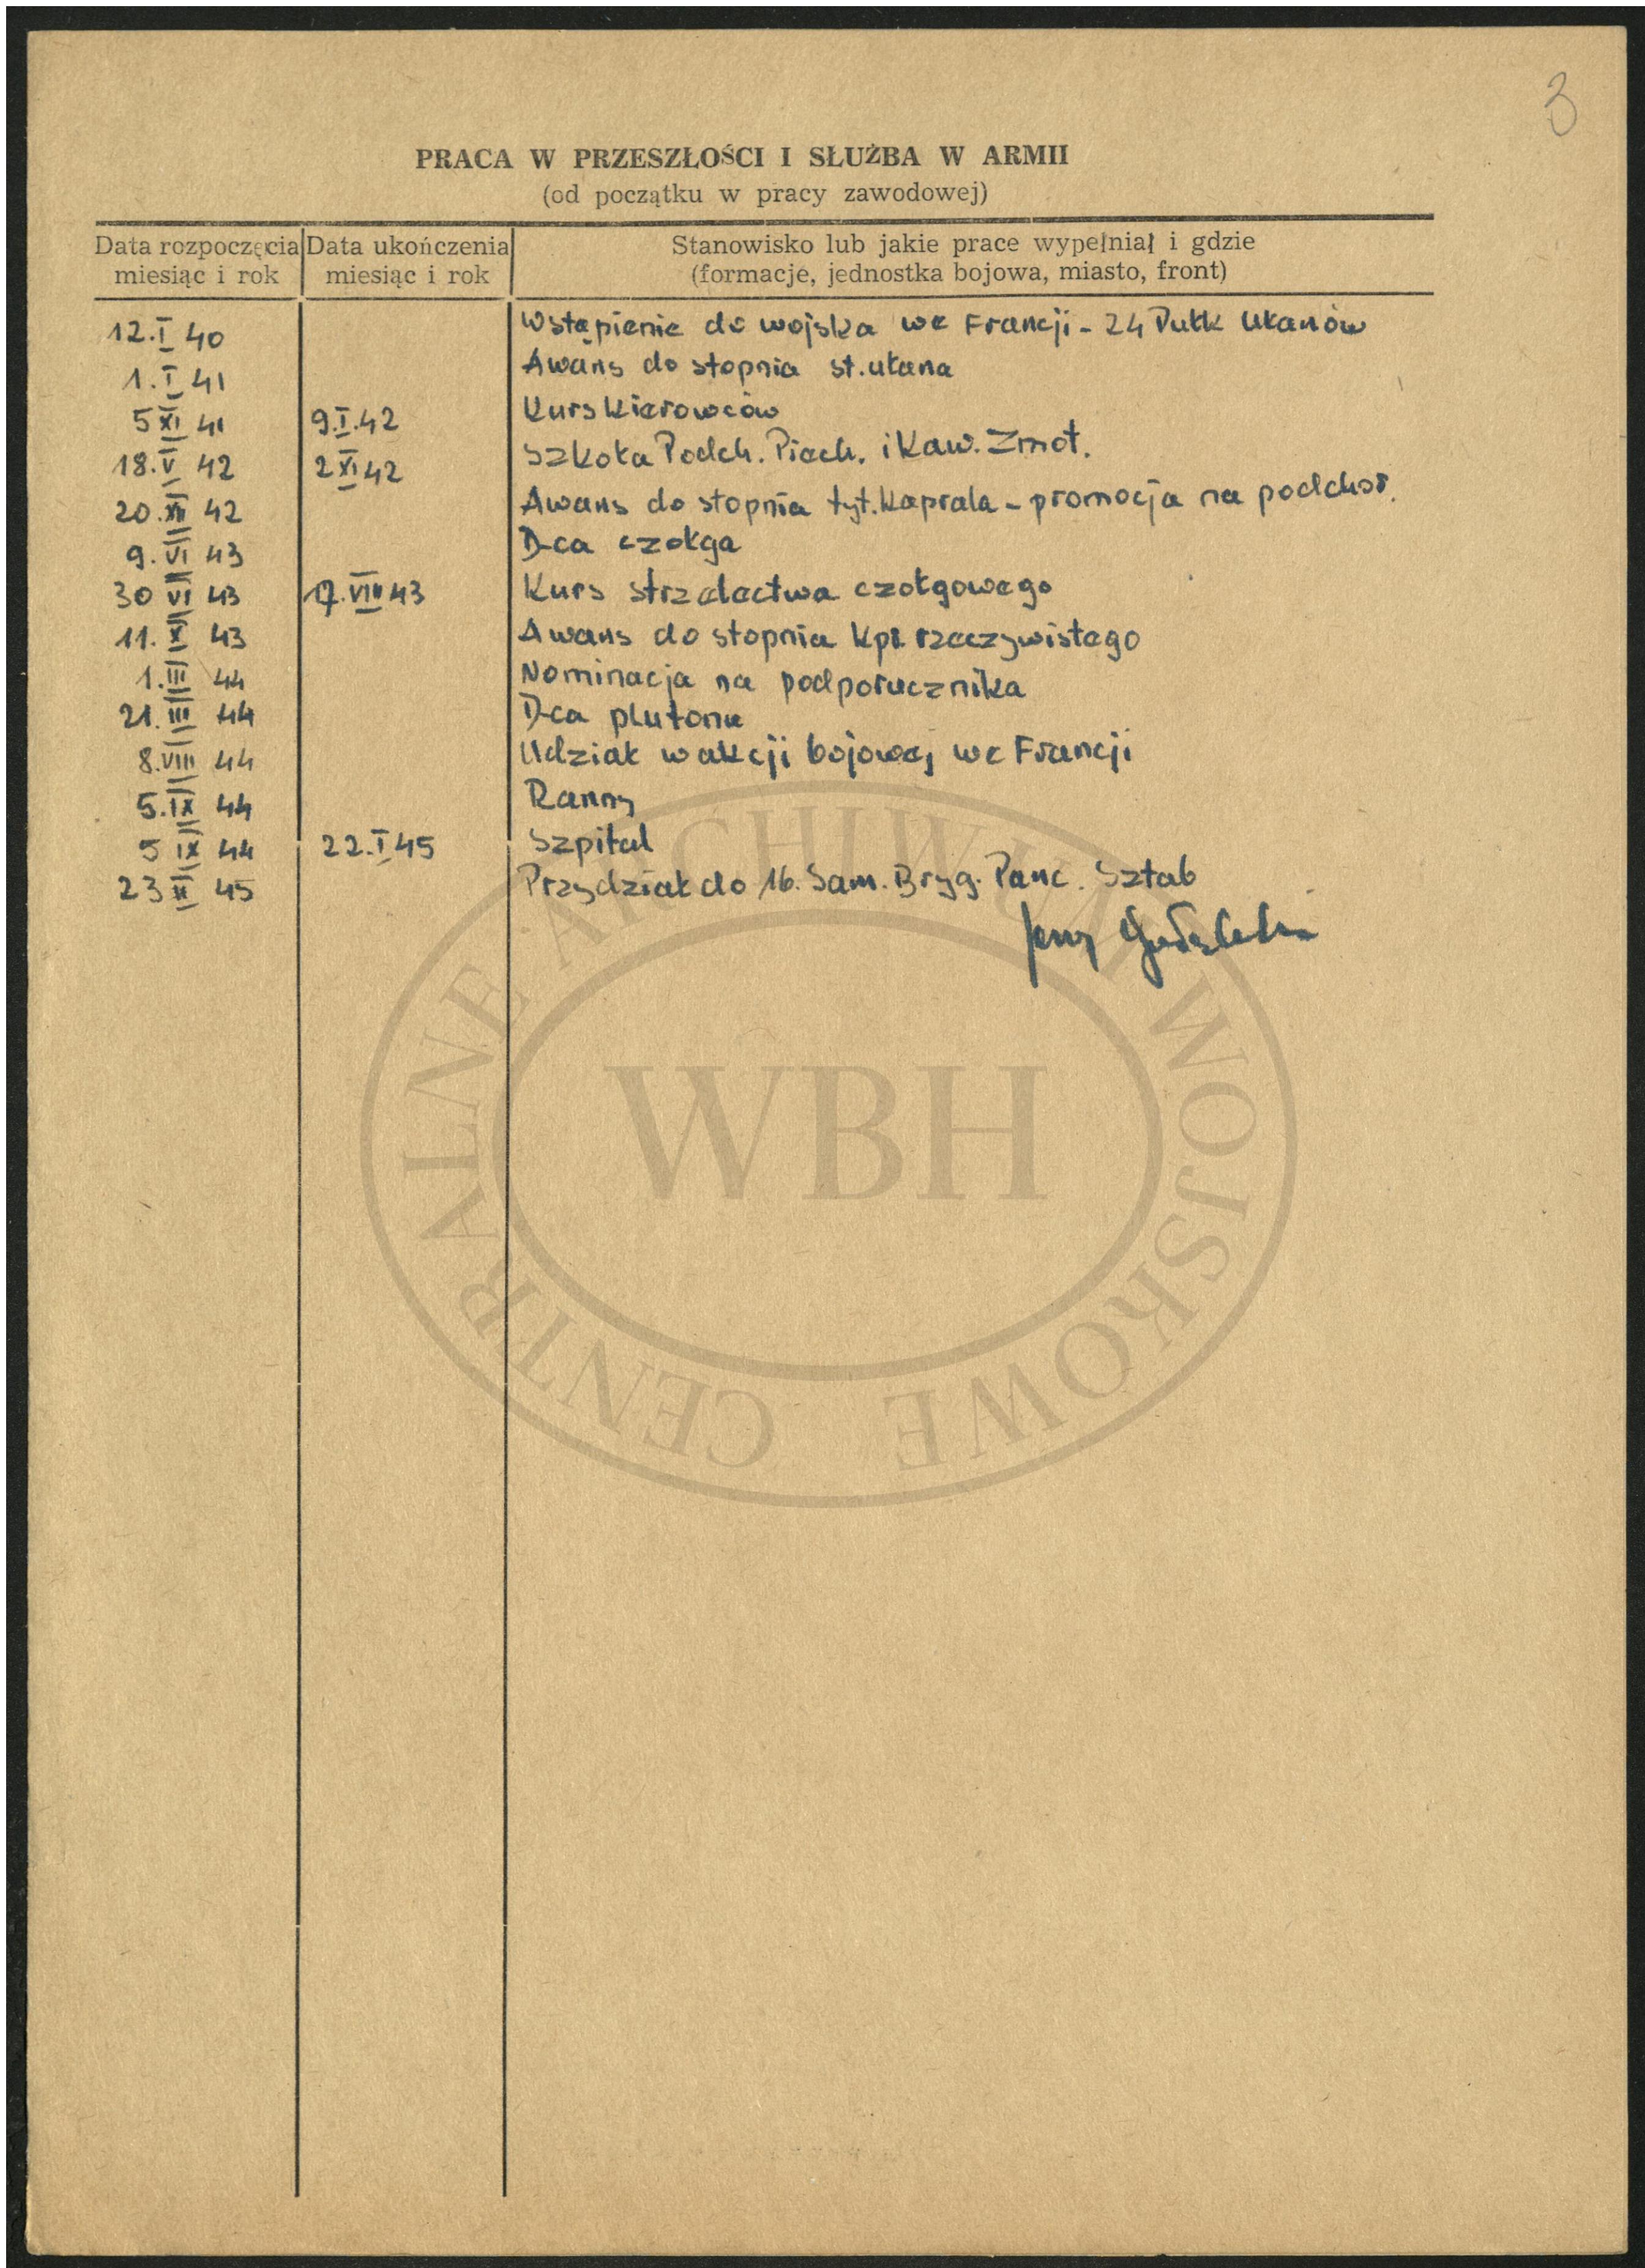 3
PRACA W PRZESZŁOŚCI I SŁUŻBA W ARMII
(od początku w pracy zawodowej)
Data rozpoczęcia miesiąc i rok | Data ukończenia miesiąc i rok | Stanowisko lub jakie prace wypełniał i gdzie (formacje, jednostka bojowa, miasto, front)
12.I 40 Wstąpienie do wojska we Francji - 24 Pułk Ułanów
1.I 41 Awans do stopnia st. ułana
5 XI 41 9.I.42 Kurs Kierowców
18.V 42 2 XI 42 Szkoła Podch. Piech. i Kaw. Zmot.
20.XII 42 Awans do stopnia tyt. kaprala - promocja na podchor.
9.VI 43 D-ca czołga
30 VI 43 17.VIII 43 Kurs strzelectwa czołgowego
11. X 43 Awans do stopnia kpr. rzeczywistego
1.III 44 Nominacja na podporucznika
21.III 44 D-ca plutonu
8.VIII 44 Udział w akcji bojowej we Francji
5.IX 44 Ranny
5 IX 44 22.I 45 Szpital
23 II 45 Przydział do 16. Sam. Bryg. Panc. Sztab
Jerzy
CENTRALNE ARCHIWUM WOJSKOWE
WBH